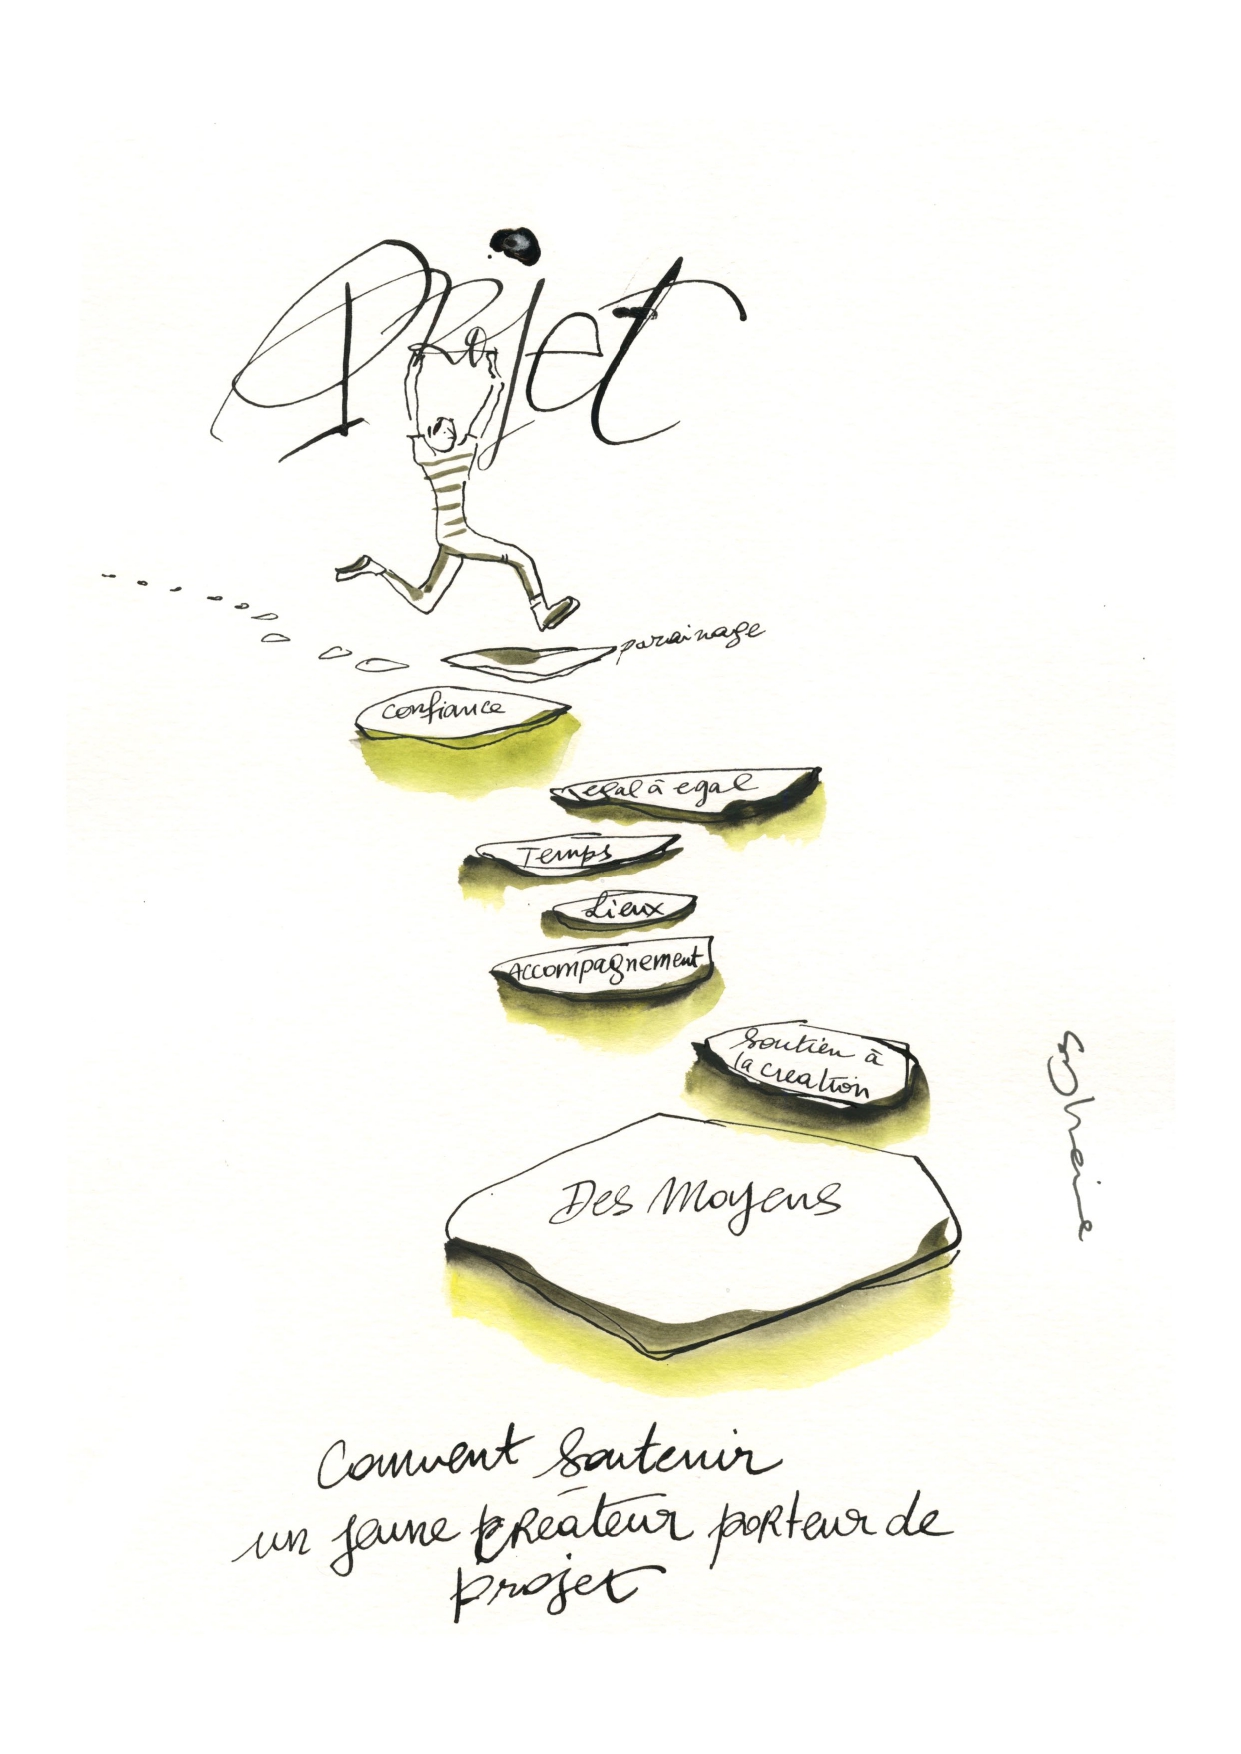 Projet
parainage
confiance
egal à egal
Temps
Lieux
Accompagnement
Soutien à
la creation
Des Moyens
Comment soutenir
un jeune créateur porteur de
projet